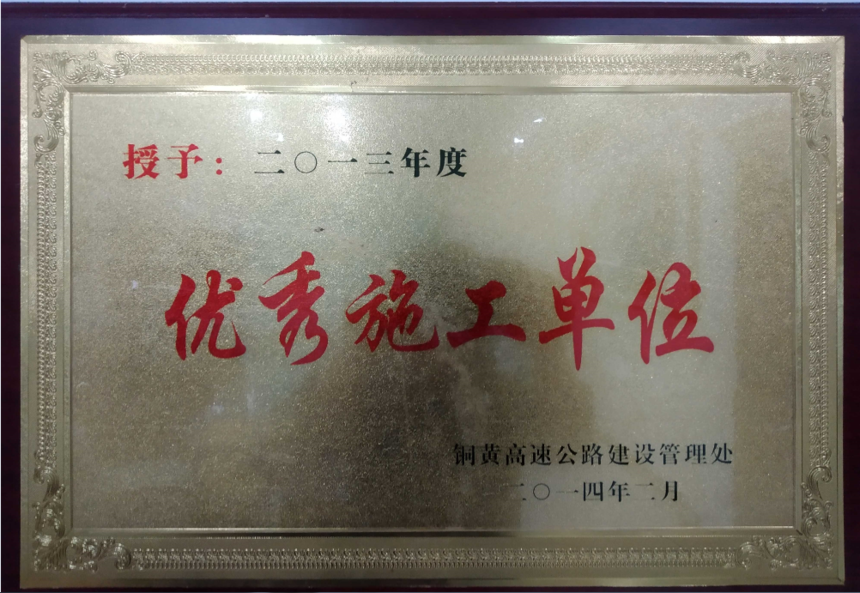 授予：二〇一三年度
优秀施工单位
铜黄高速公路建设管理处
二〇一四年二月